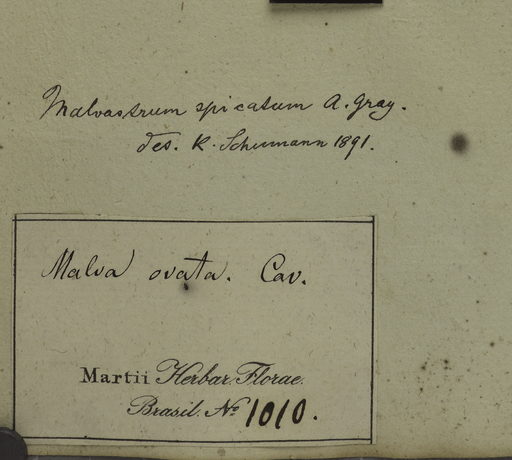 Malvastrum spicatum A. Gray.
des. K. Schumann 1891.
Malva ovata. Cav.
Martii Herbar. Florae
Brasil. No 1010.